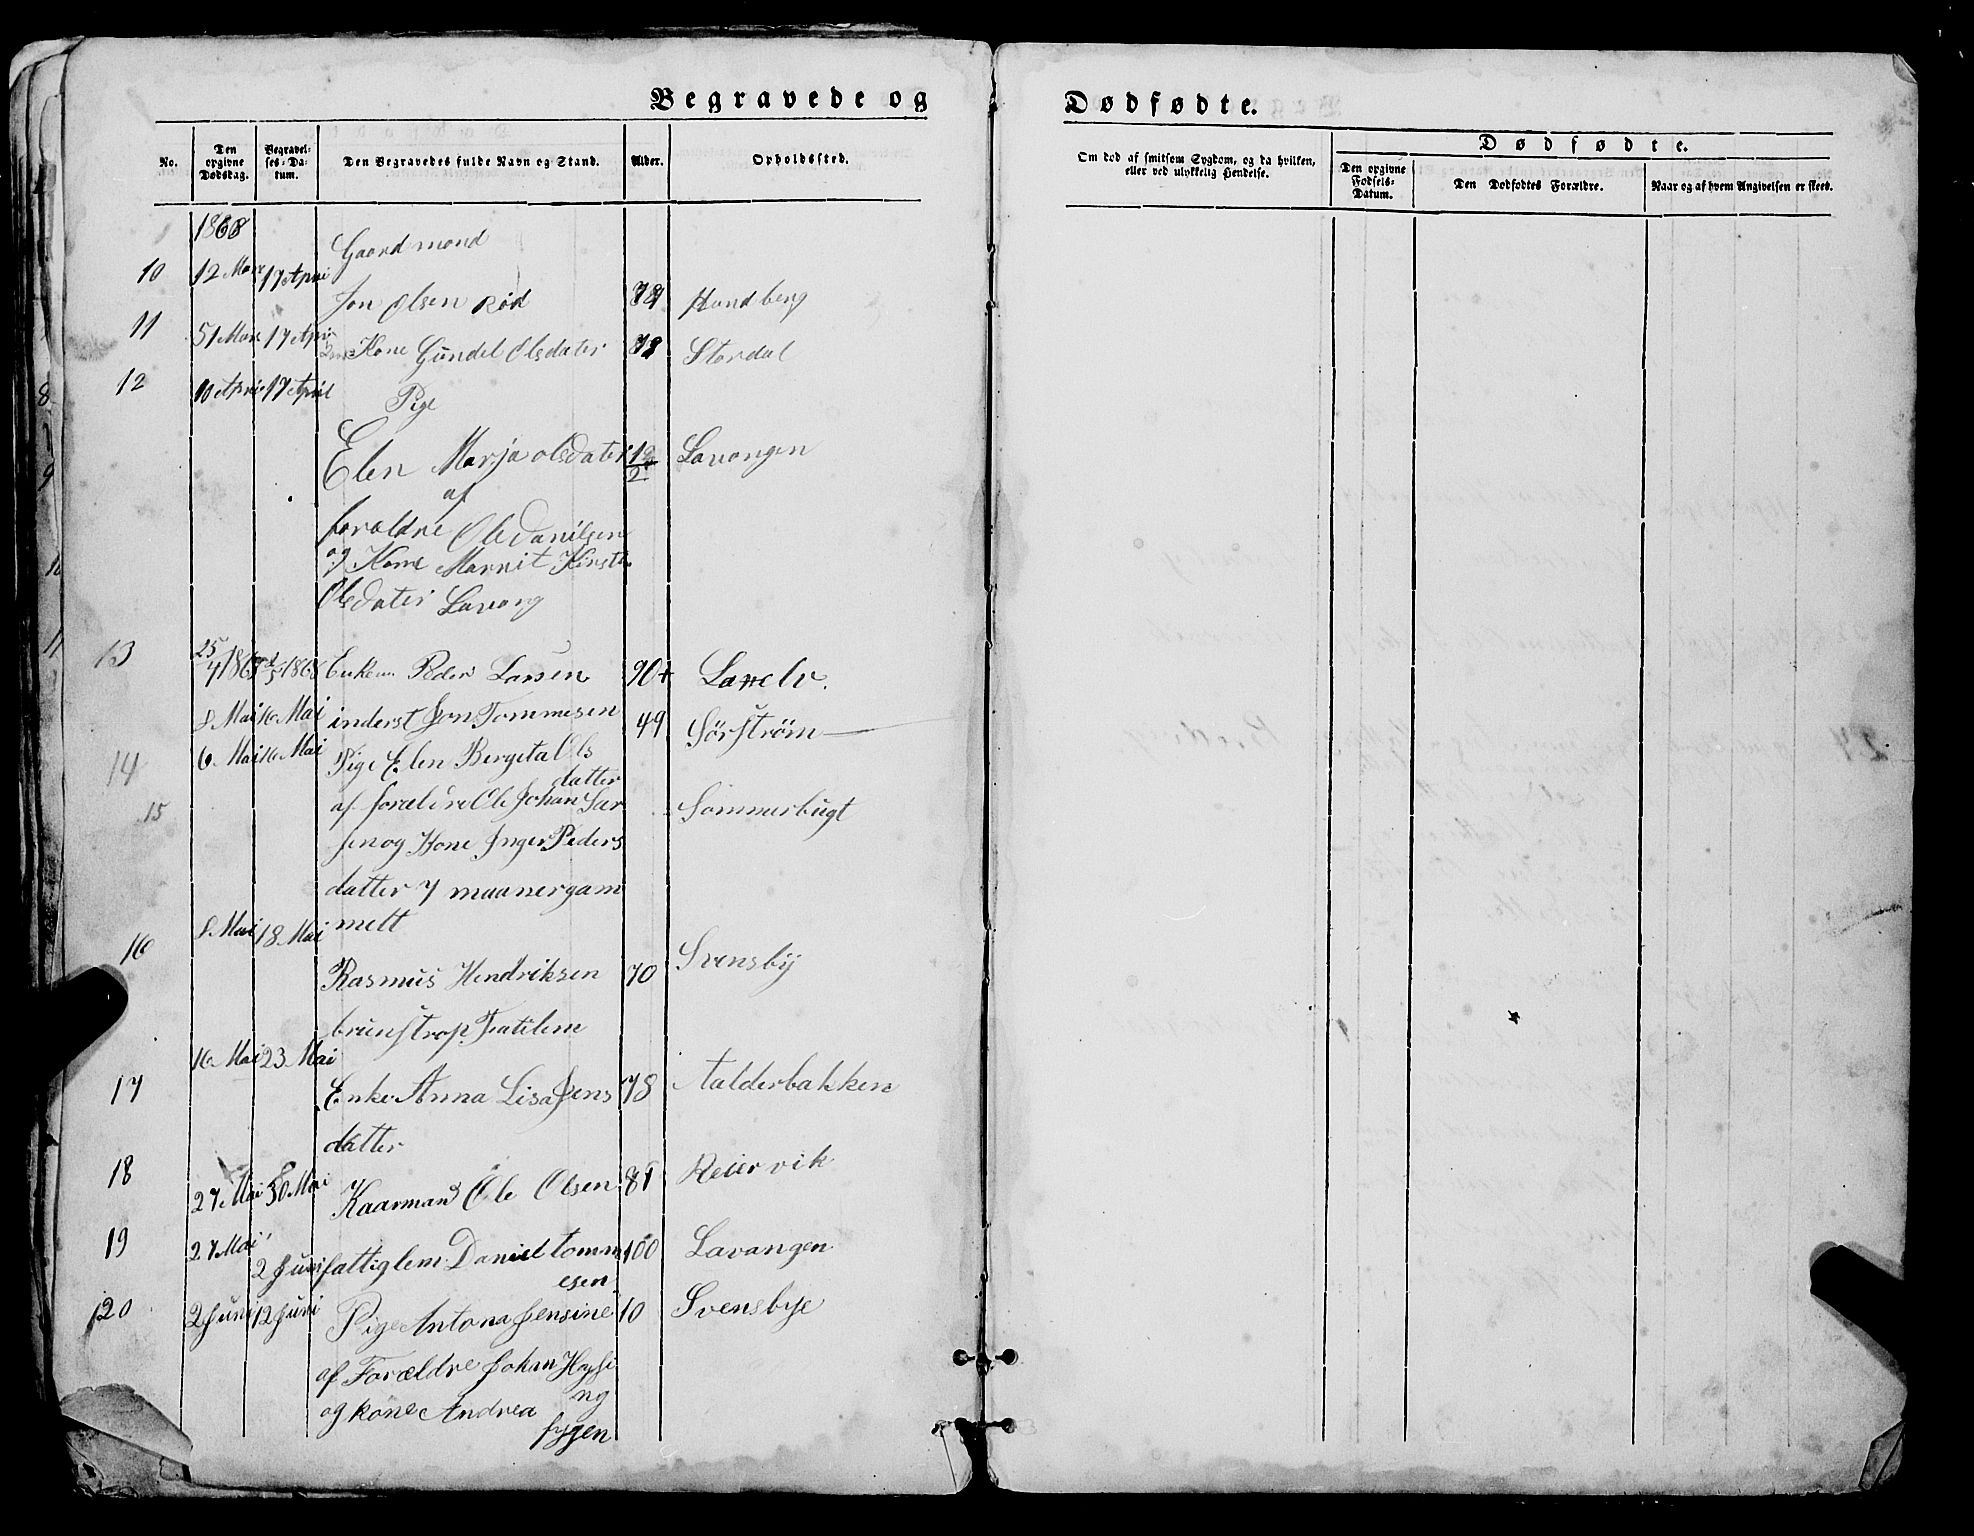 Begravede og
Dødfødte.
No.
Den opgivne Dødsdag.
Begravelses-Datum.
Den Begravedes fulde Navn og Stand.
Alder.
Opholdssted.
Om død af smitsom Sygdom, og da hvilken, eller ved ulykkelig Hendelse.
Dødfødte.
Den opgivne Fødsels-Datum.
Den Dødfødtes Forældre.
Naar og af hvem Angivelsen er skeet.
1868
Gaardmand
10 12 Mars 17 April
Jon Olsen Rød Hundberg
11 17 Apri Kone Gundel Olsdater Stordal
12 10 April 17 April Pige
Elen Marja olsdater Lavangen
af
foraldre Ole Danilsen
og Kone Marrit Kirst
Olsdater Lavang
13 25/4 1868 1868 Enkem Peder Larsen 90
8 Mai 16 Mai inderst Jon Tommesen 49 Sørstrøm
14 6 Mai 16 Mai Pige Elen Bergeta Ols
datter
15 af foreldre Ole Johan Lar Sommerbugt
sen og Kone Inger Peders
datter 7 maanergam
melt
16 8 Mai 18 Mai
Rasmus Hendriksen 70 Svensby
16 Mai 23 Mai
17 Enke Anna Lisa Jens 78 Aalderbakken
datter
18 27 Mai 30 Mai Kaarmand Ole Olsen 81 Reiervik
19 27 Mai 2 Juni fattiglem Daniel tomm 100 Lavangen
esen
20 2 Juni 12 Juni Pige Antona Jensine 10 Svensbye
af Forældre Johan
og kone Andrea